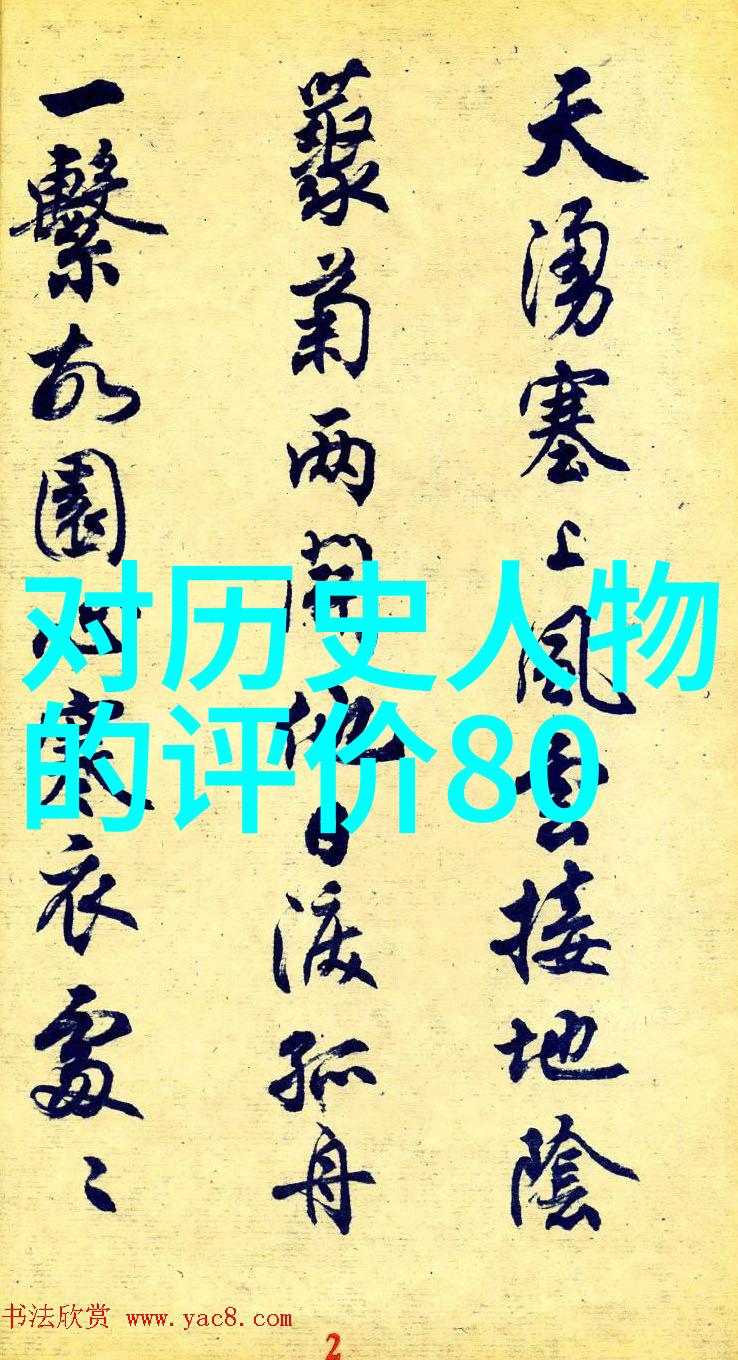 天湧塞上風雲接地陰
藂菊两開他日淚孤舟
一繫故園心寒衣處〻
对历史人物
的评价80
书法欣赏 www.yac8.com
2